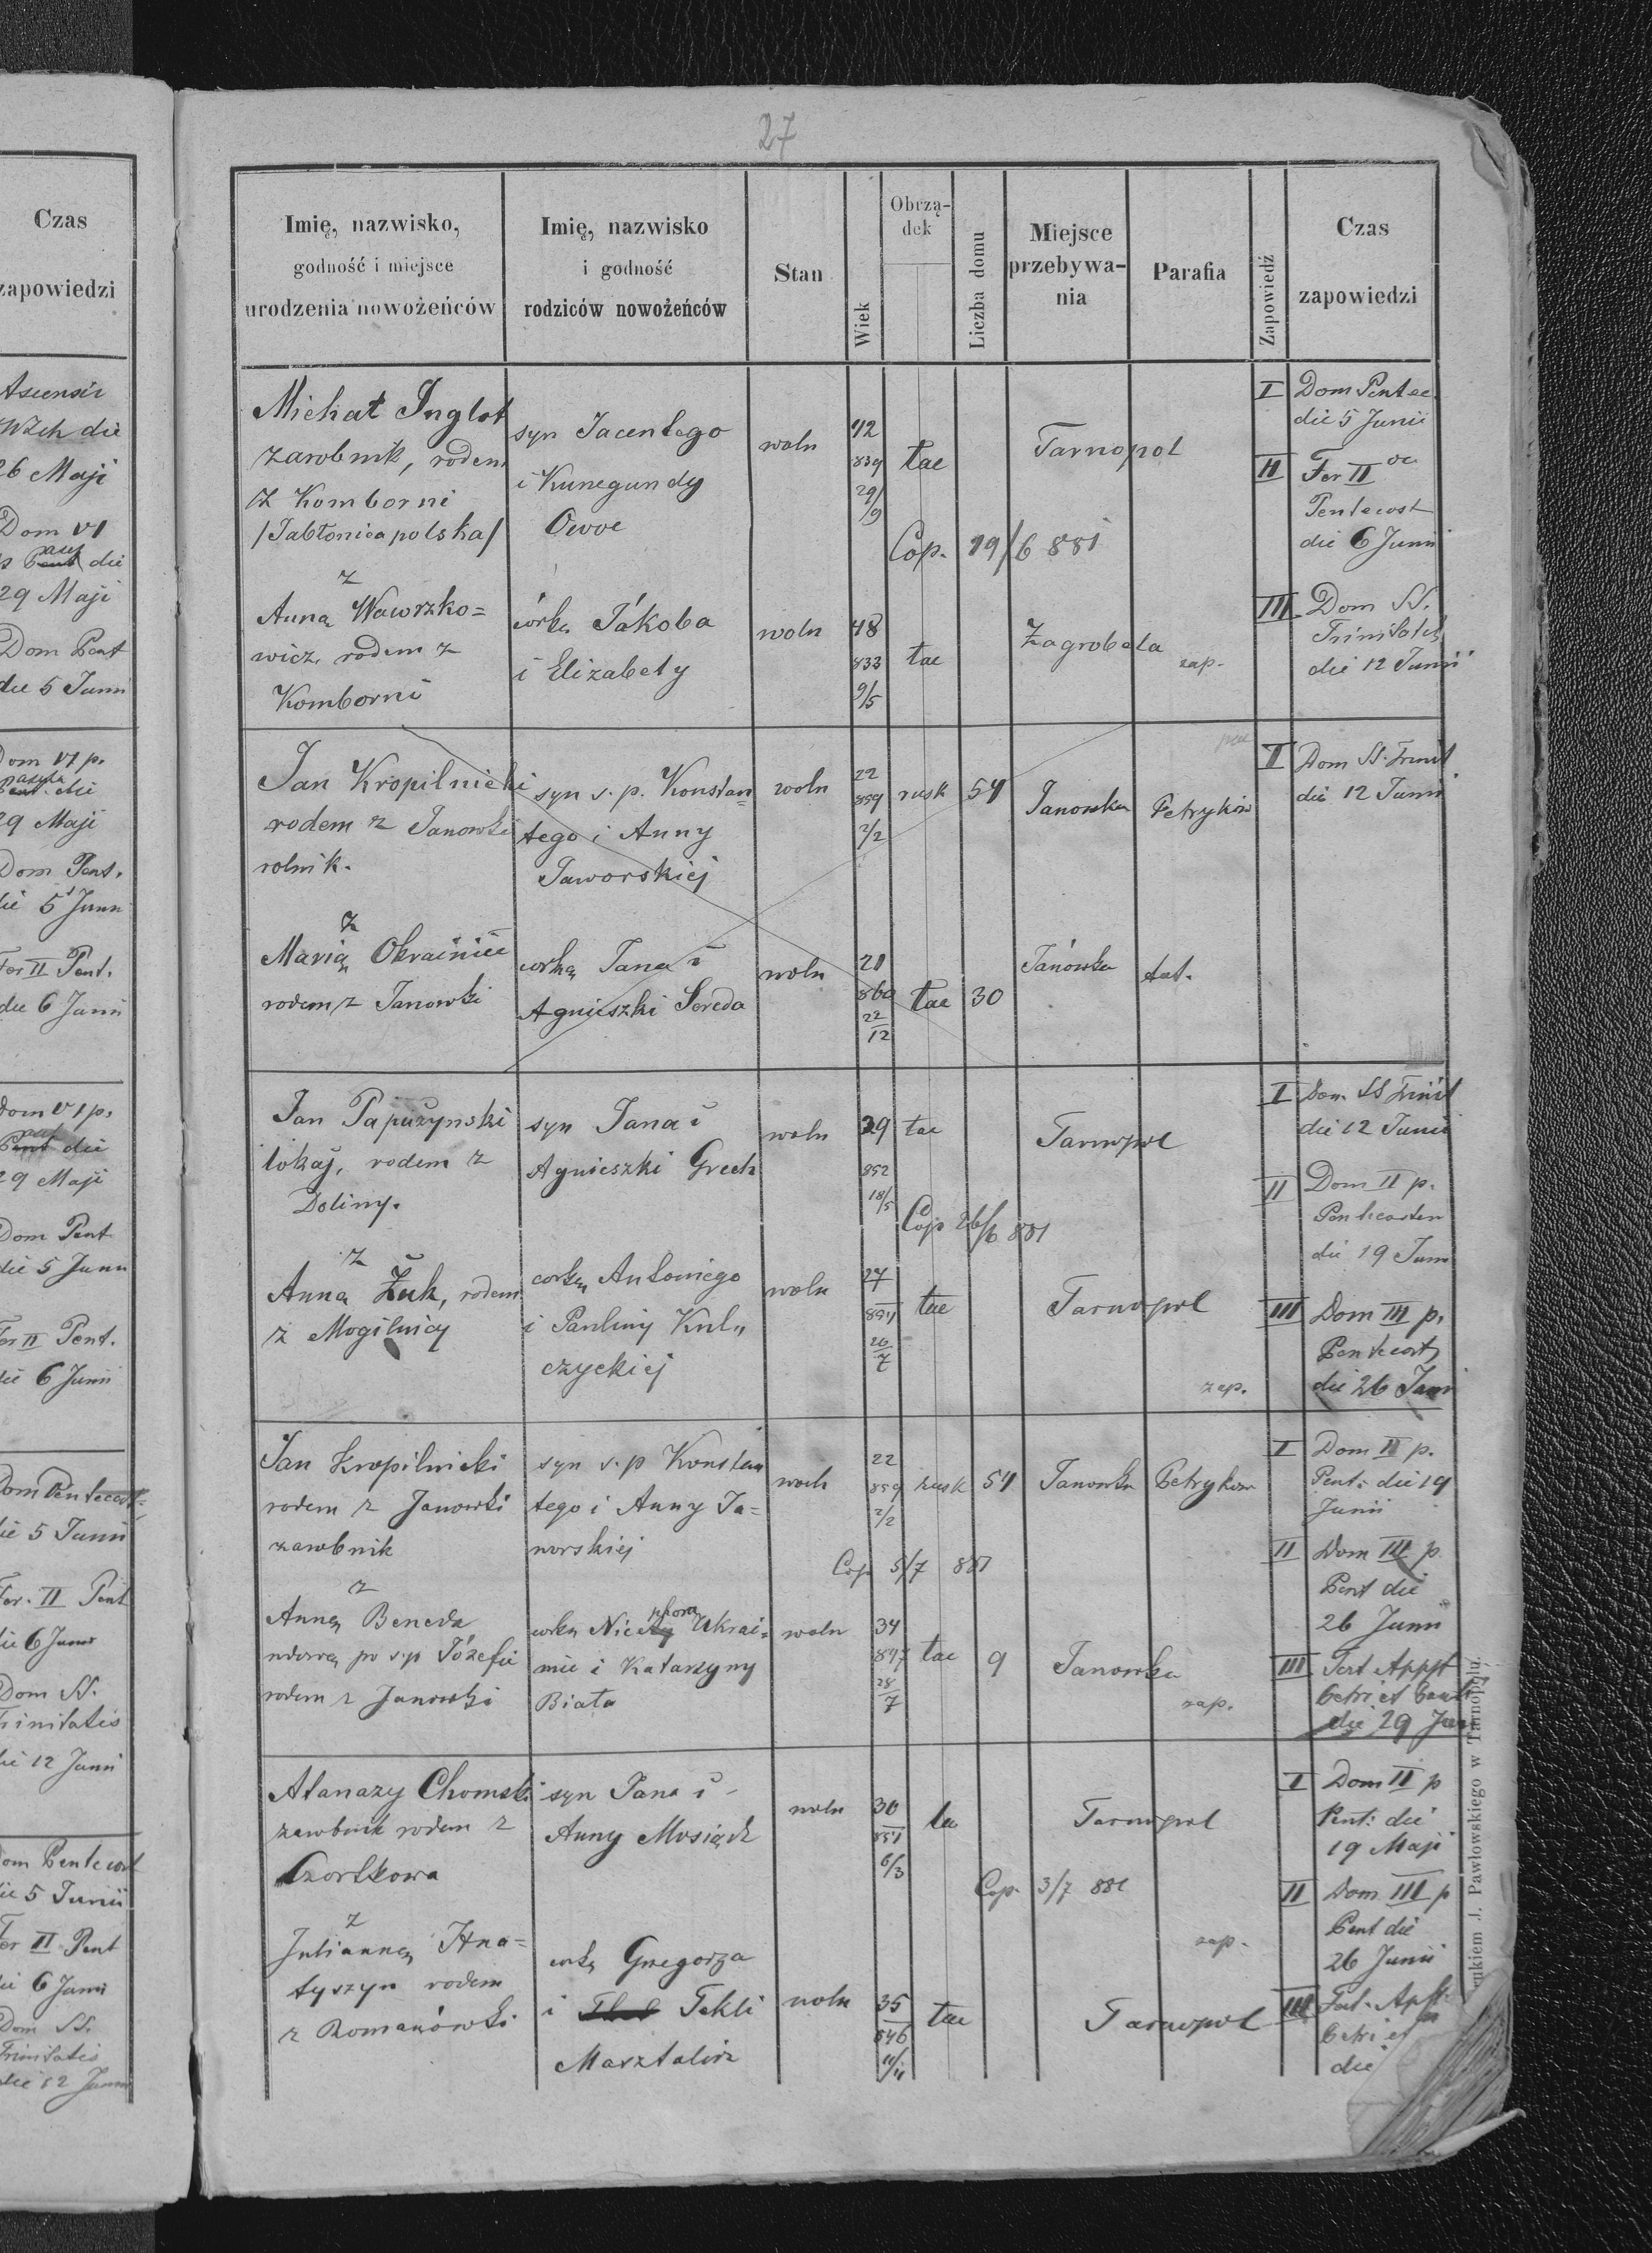 Czas
zapowiedzi
26 Maji
Dom VI
die
29 Maji
Dom Pent
die 5 Junii
Dom VI p.
29 Maji
Dom Pent.
die 5 Junii
Fer II Pent.
die 6 Junii
Dom VI p.
die
29 Maji
Dom Pent
die 5 Junii
Fer II Pent.
die 6 Junii
Dom Pentecost
die 5 Junii
Fer. II Pent
die 6 Junii
Dom SS.
Trinitatis
die 12 Junii
Dom Pentecost
die 5 Junii
Fer II Pent
die 6 Junii
Dom SS.
Trinitatis
die 12 Junii
27
Imię, nazwisko,
godność i miejsce
urodzenia nowożeńców
Imię, nazwisko
i godność
rodziców nowożeńców
Stan
Wiek
Obrzą-
dek
Liczba domu
Miejsce
przebywa-
nia
Parafia
Zapowiedź
Czas
zapowiedzi
Michał Inglot
zarobnik, rodem
z Komborni
/Jabłonica polska/
syn Jacentego
i Kunegundy
Owoc
woln
42
839
29/9
łac
Tarnopol
Cop. 19/6 881
I Dom Pentec
die 5 Junii
II Fer II
Pentecost
die 6 Junii
z
Anną Wawrzko=
wicz, rodem z
Komborni
córką Jákoba
i Elizabety
woln
48
833
9/5
łac
Zagrobela
zap.
III Dom SS.
Trinitatis
die 12 Junii
Jan Kropilnicki
rodem z Janowki
rolnik.
syn s. p. Konstan=
tego i Anny
Jaworskiej
woln
22
859
2/2
rusk
54
Janowka
Petryków
II Dom SS. Trinit
die 12 Junii
z
Marią Okrainiec
rodem z Janowki
corką Jana i
Agnieszki Sereda
woln
21
860
22/12
łac
30
Janówka
Jan Papużynski
lokaj, rodem z
Doliny.
syn Jana i
Agnieszki Grech
woln
29
852
18/5
łac
Tarnopol
Cop 26/6 881
I Dom. SS Trinit
die 12 Junii
II Dom II p.
Pentecosten
die 19 Juni
z
Anna Żuk, rodem
z Mogilnicy
corką Antoniego
i Pauliny Kul„
czyckiej
woln
27
854
26/7
łac
Tarnopol
zap.
III Dom III p.
Pentecost
die 26 Juni
Jan Kropilnicki
rodem z Janowki
zarobnik
syn s. p Konstan
tego i Anny Ja=
worskiej
woln
22
859
2/2
rusk
54
Janowka
Petrykow
Cop 5/7 881
I Dom II p.
Pent: die 19
Junii
II Dom III p
Pent die
26 Junii
z
Anną Beneda
wdową po s.p Józefie
rodem z Janowki
corką Nicephora Ukrai=
niec i Katarzyny
Biała
woln
34
847
28/7
łac
9
Janowka
zap.
III Fest Appst
Petri et Pauli
die 29 Juni
Atanazy Chomski
zarobnik rodem z
Czortkowa
syn Jana i
Anny Mosiądz
woln
30
851
6/3
Tarnopol
Cop. 3/7 881
I Dom II p
Pent: die
19 Maji
II Dom III p
Pent die
26 Junii
z
Julianną Hna=
tyszyn rodem
z Romanówki
corką Grzegorza
i Tekli
Marztalirz
woln
35
846
11/11
łac
Tarnopol
zap.
III Fest. Apst
Petri et
die
Drukiem J. Pawłowskiego w Tarnopolu.